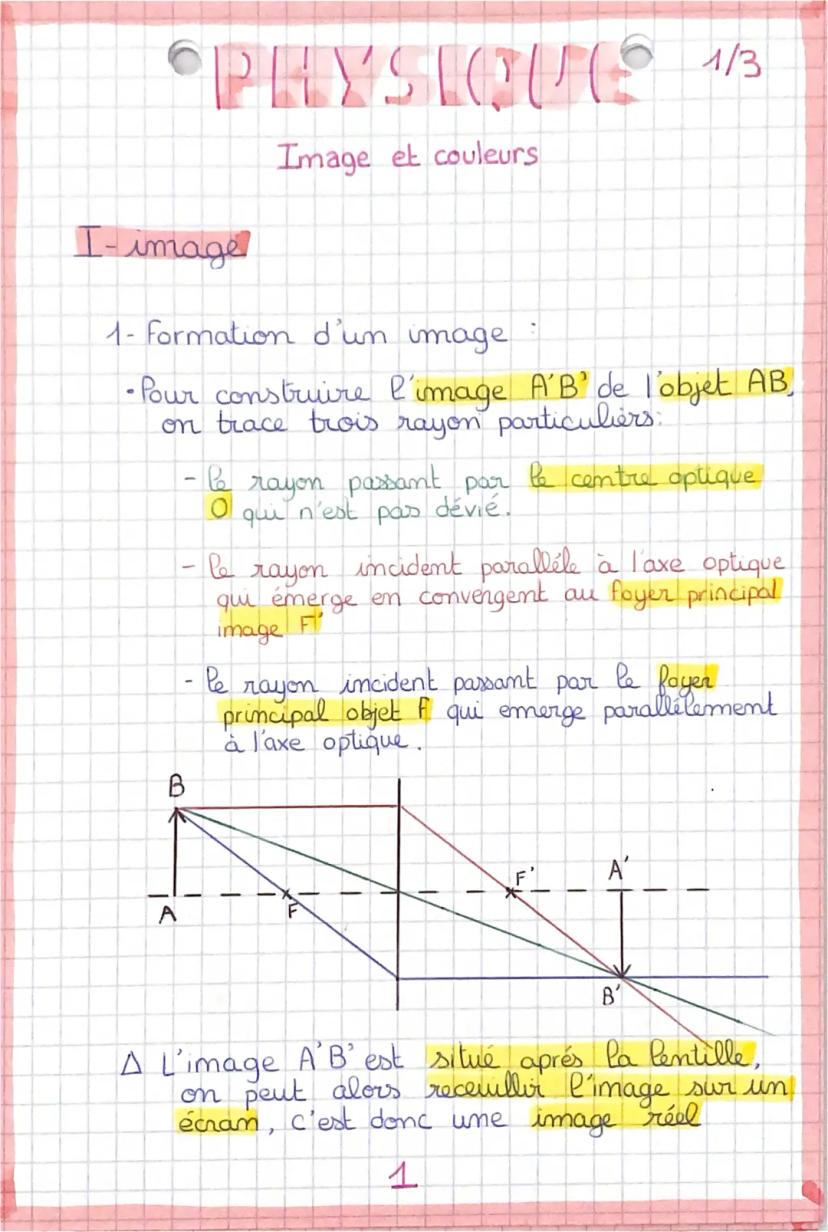 PHYSIQUE 1/3
Image et couleurs
I-image
1- Formation d'un image :
• Pour construire l'image A'B' de l'objet AB,
on trace trois rayon particuliers:
- le rayon passant par le centre optique
O qui n'est pas dévié.
- le rayon incident paralléle à l'axe optique
qui émerge en convergent au foyer principal
image F'
- le rayon incident passant par le foyer
principal objet F qui emerge parallèlement
à l'axe optique.
B
F' A'
A F
B'
Δ L'image A'B' est situé aprés la lentille,
on peut alors receuillir l'image sur un
écran, c'est donc une image réel
1